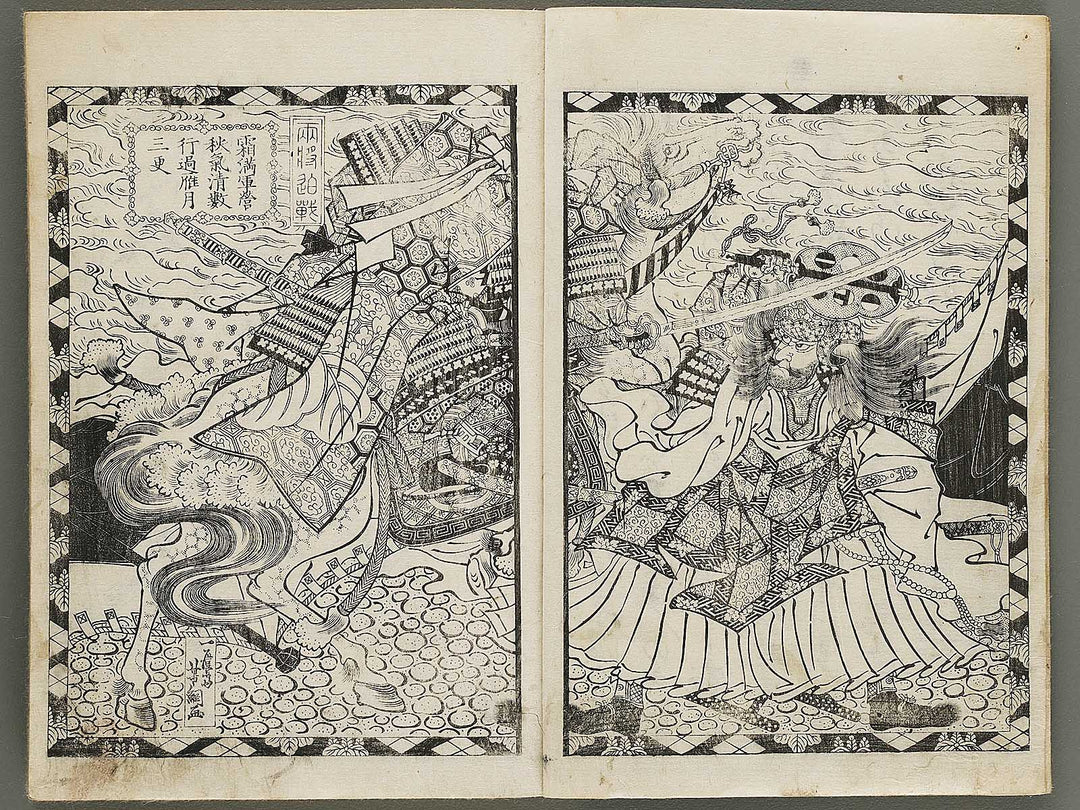 兩將迫戰
霜満軍營
秋氣清數
行過雁月
三更